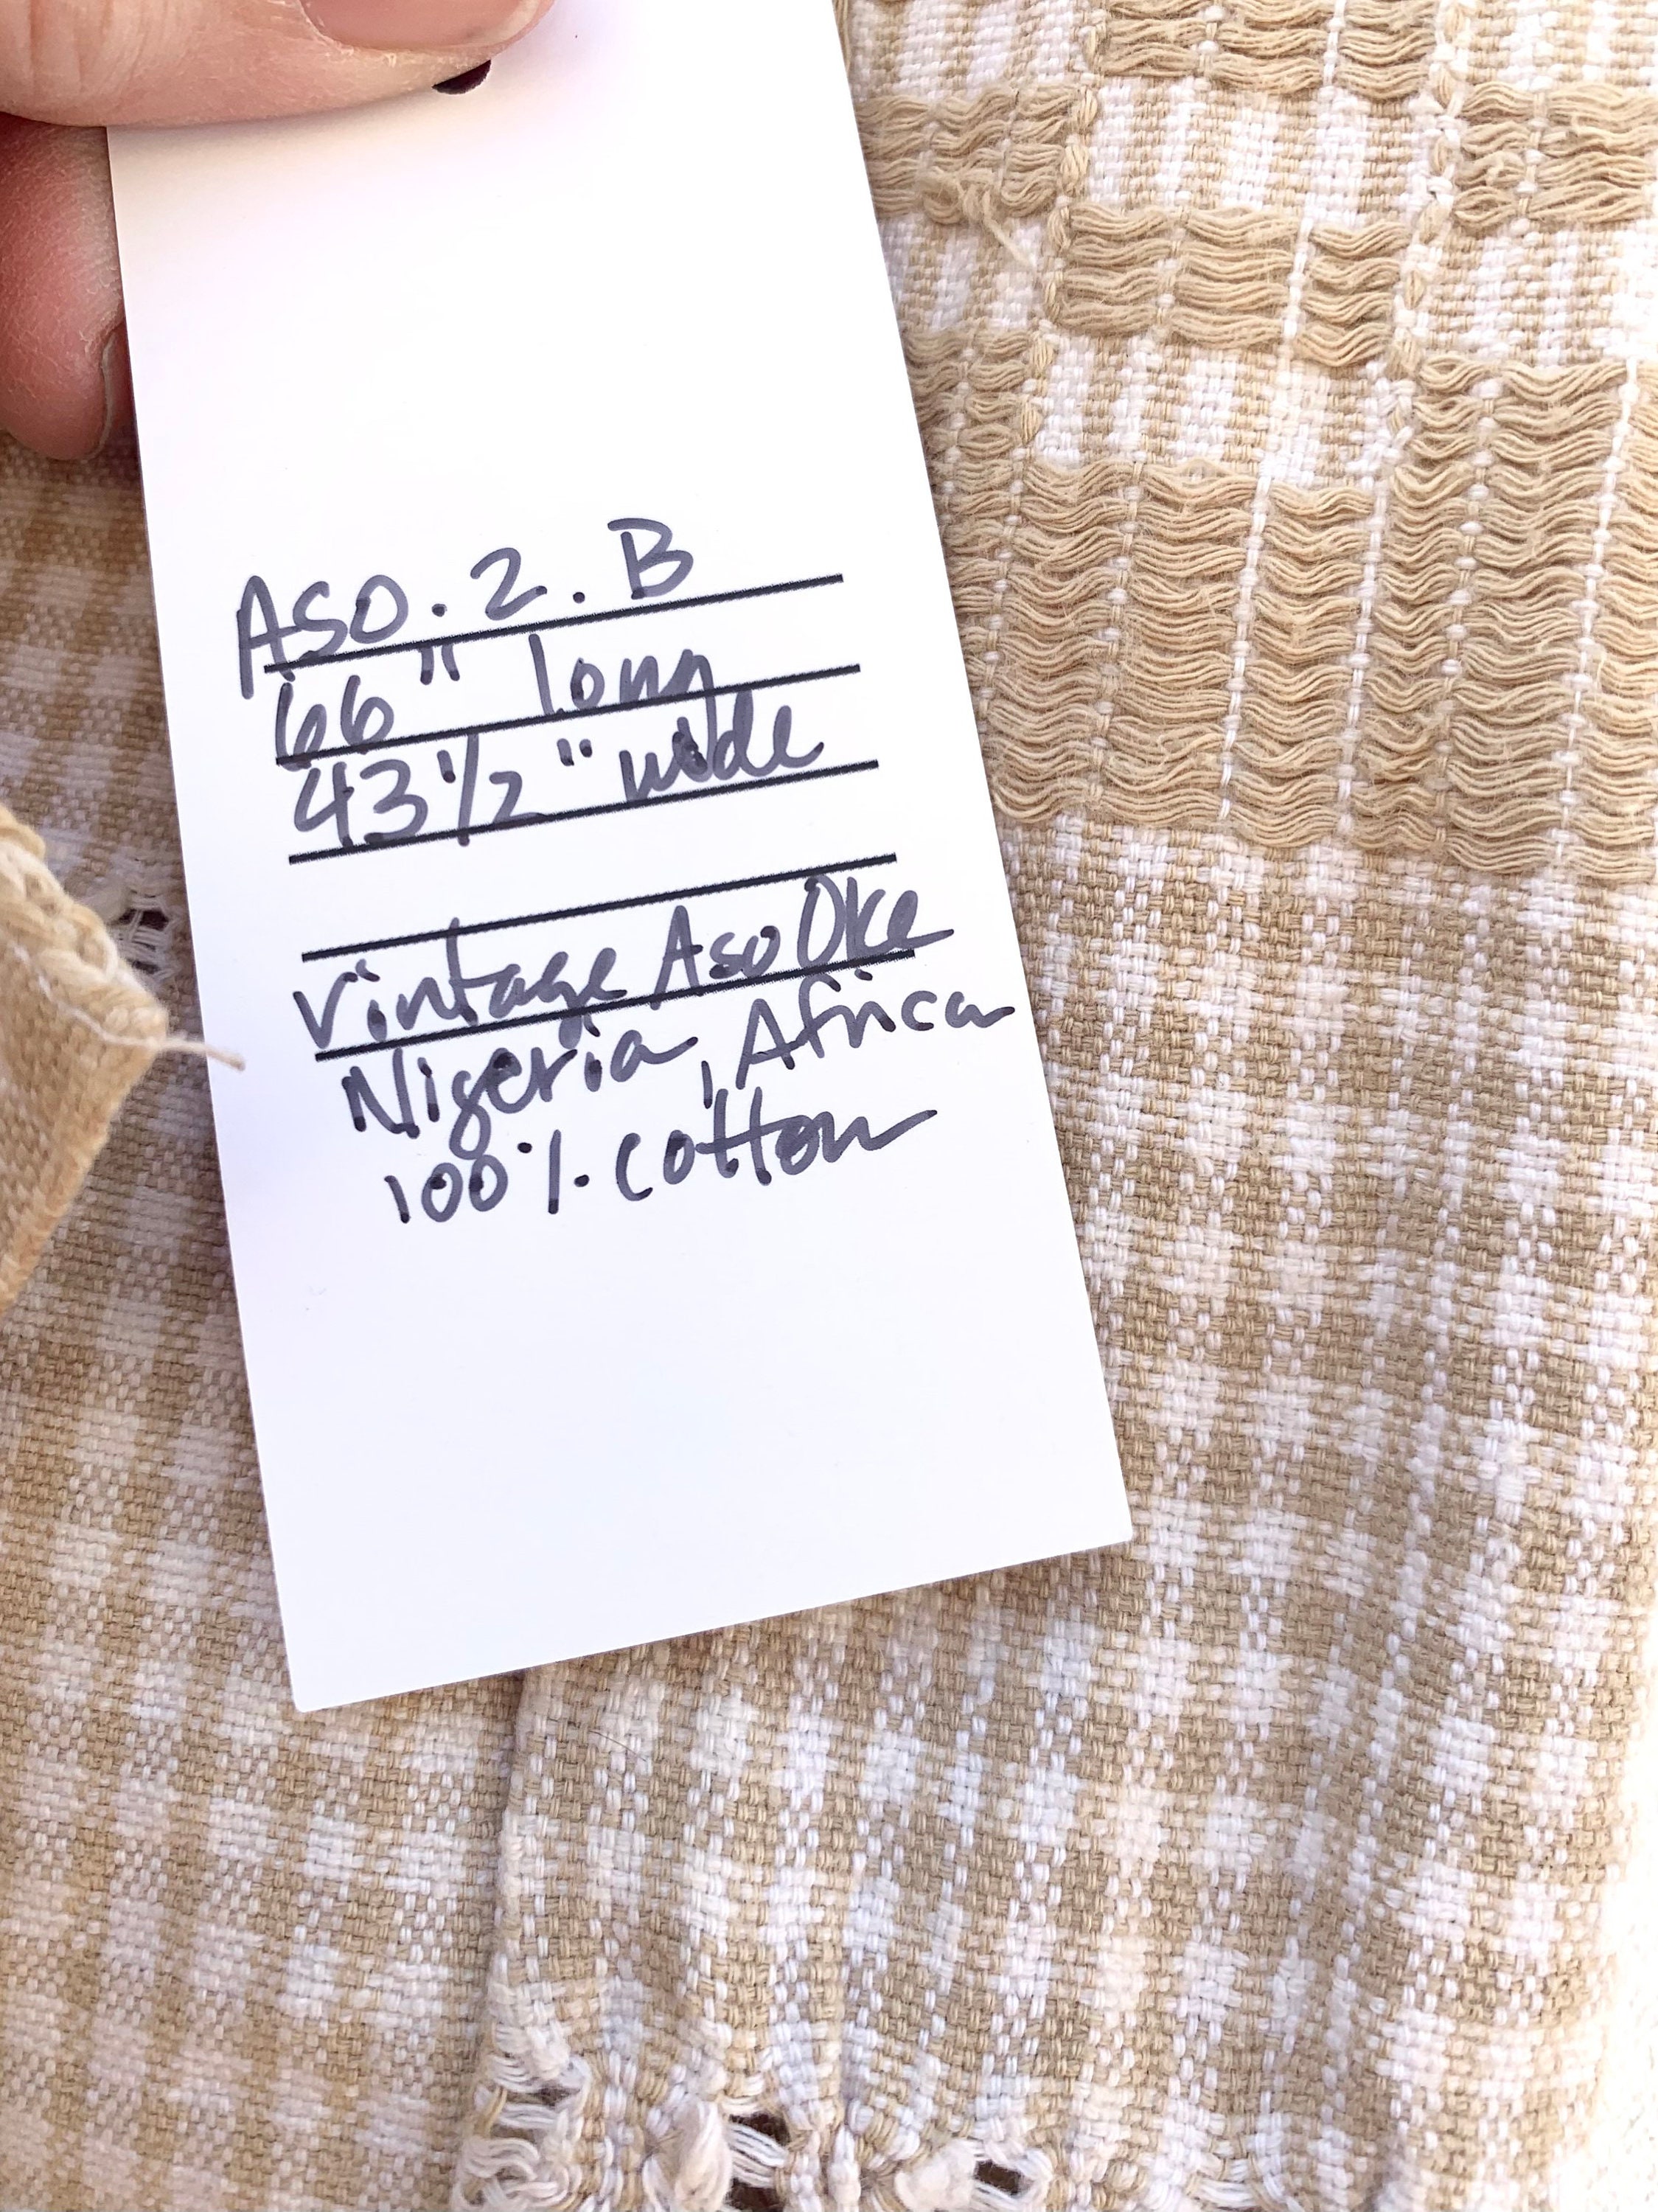 ASO. 2. B
66" long
43 1/2" wide
Vintage Aso Oke
Nigeria, Africa
100% cotton